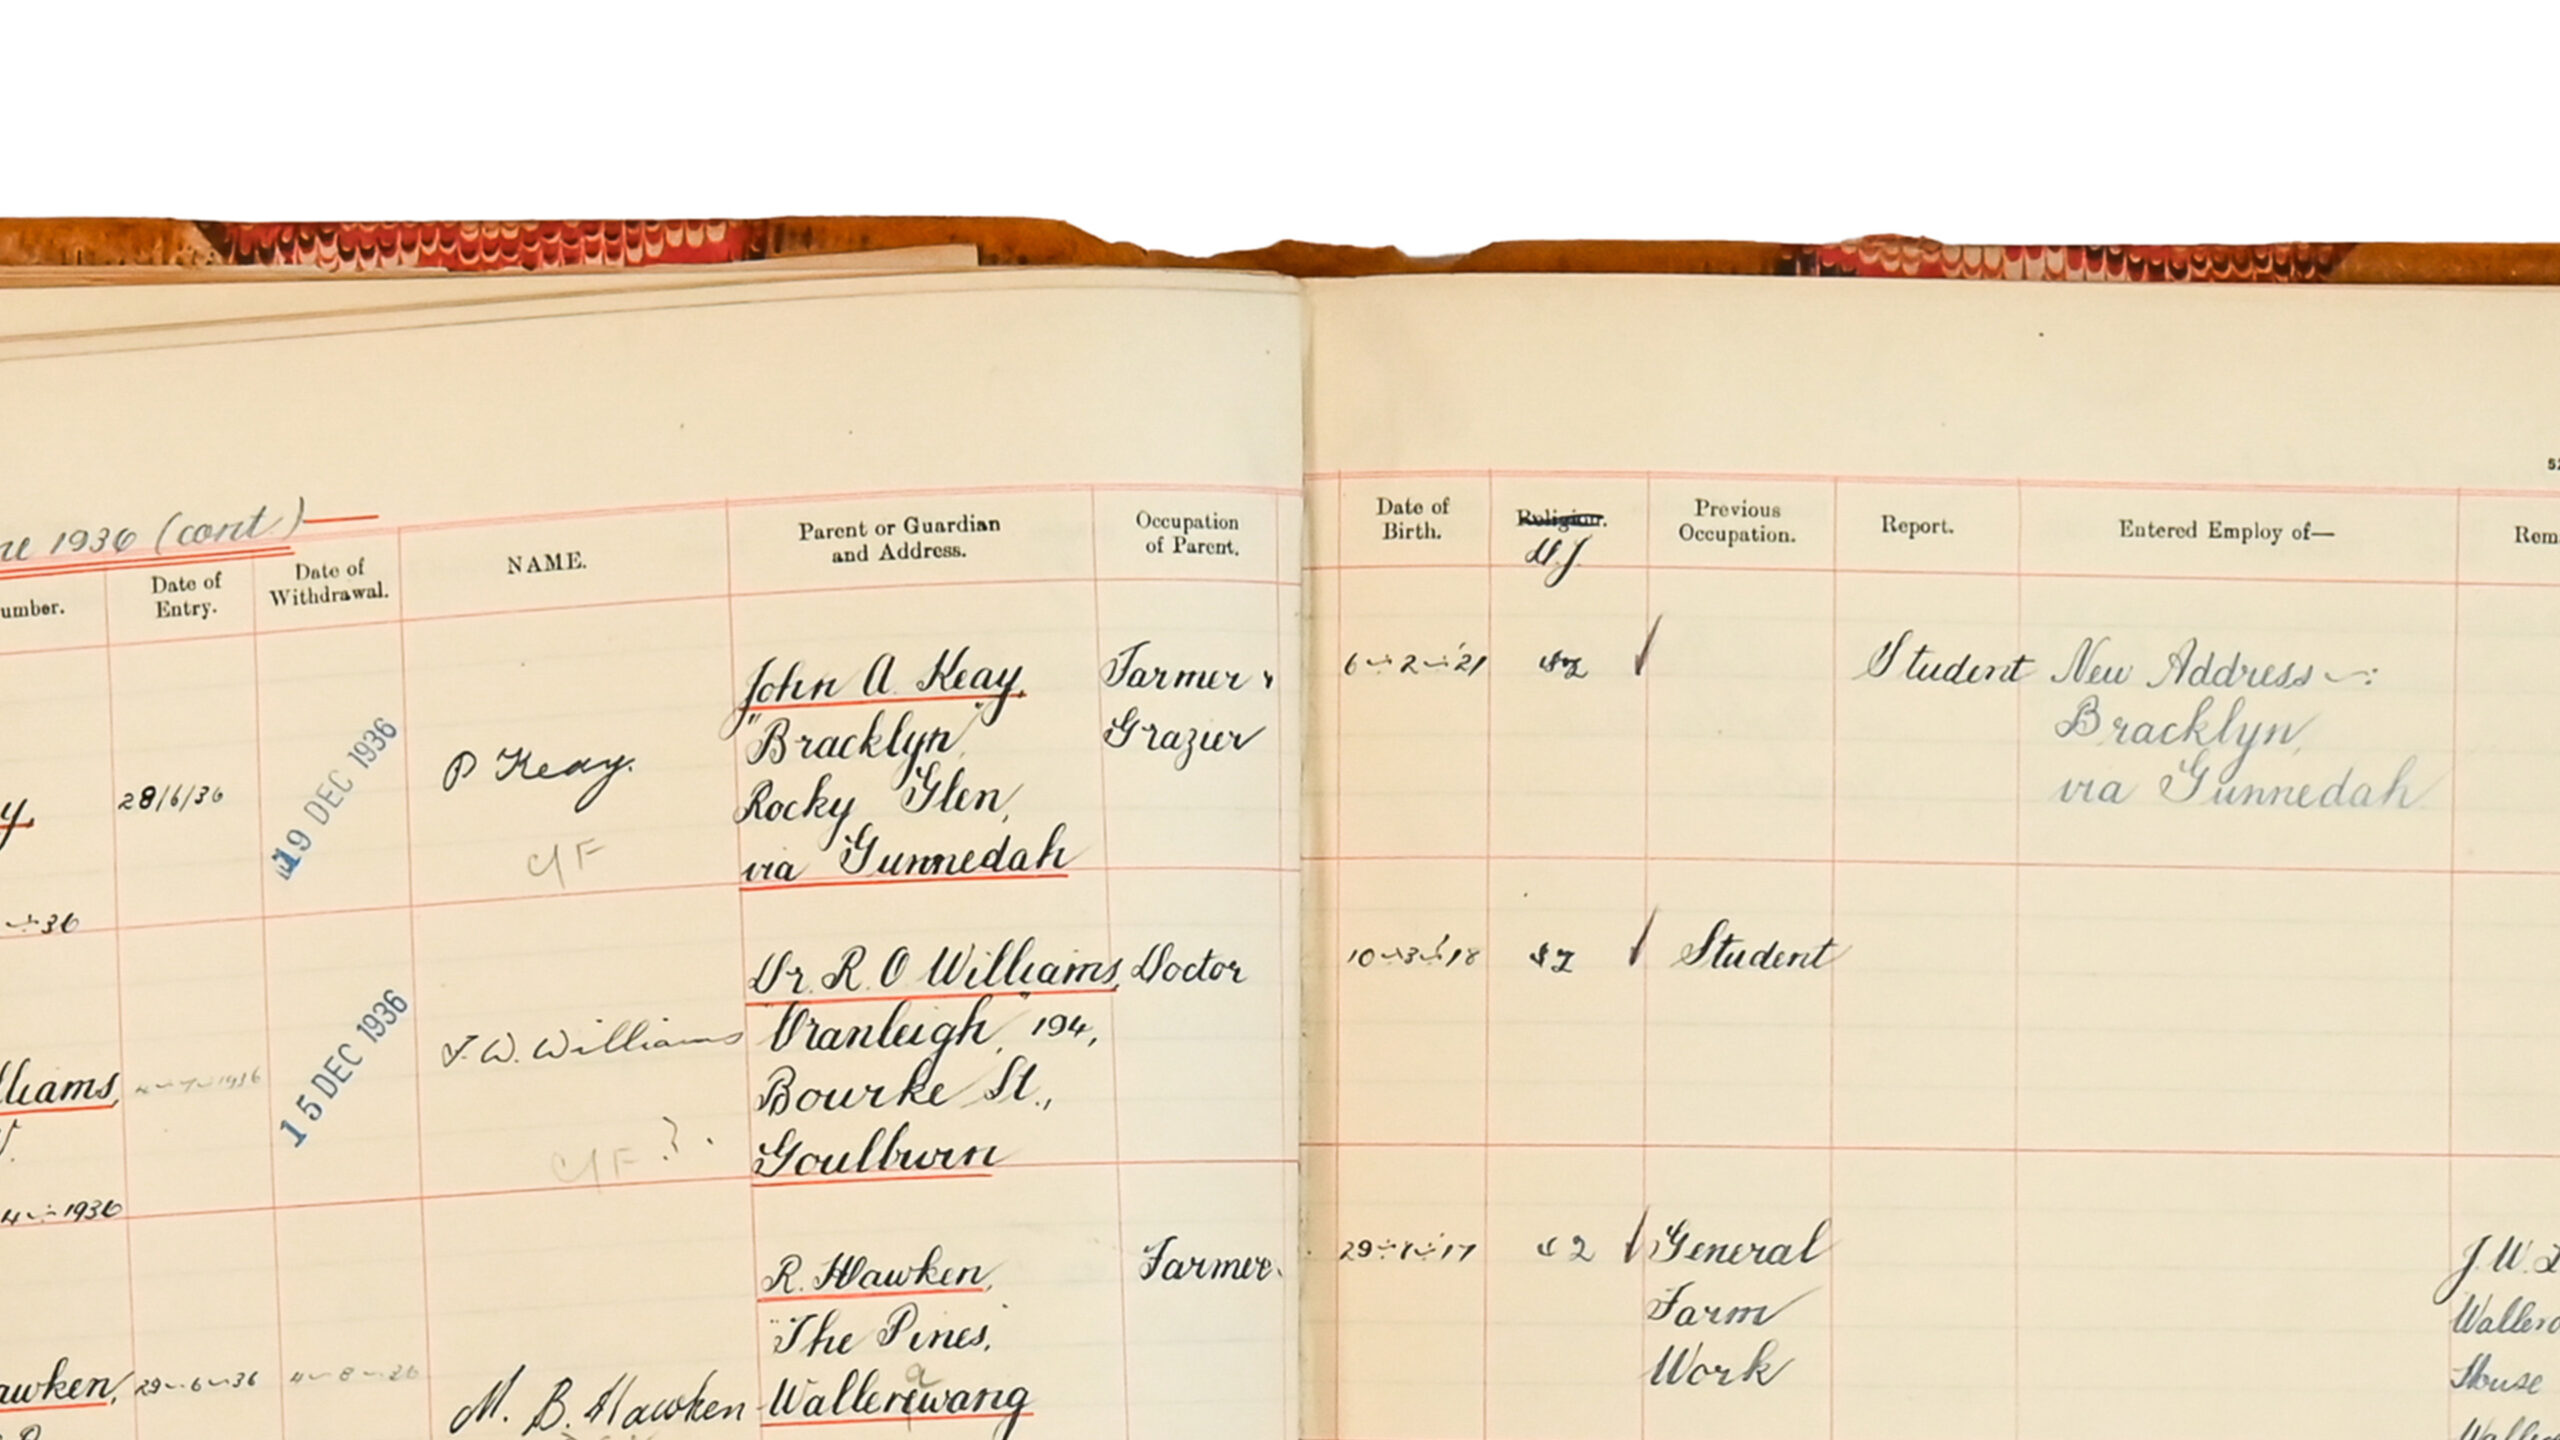 1936 (cont.)
umber.
Date of
Entry.
Date of
Withdrawal.
NAME.
Parent or Guardian
and Address.
Occupation
of Parent.
Date of
Birth.
Religion.
Previous
Occupation.
Report.
Entered Employ of—
Rem
y,
28/6/36
19 DEC 1936
P Keay.
C/F
John A. Keay,
"Bracklyn",
Rocky Glen,
via Gunnedah
Farmer &
Grazier
6-2-'21
Student
New Address-:
Bracklyn,
via Gunnedah
36
lliams,
4-7-1936
15 DEC 1936
J. W. Williams
C/F ?.
Dr. R. O Williams,
194,
Bourke St.,
Goulburn
Doctor
10-3-'18
Student
4-1936
awken,
29-6-36
4-8-36
M. B. Hawken
R. Hawken,
"The Pines,"
Wallerawang
Farmer.
'17
General
Farm
Work
J. W.
House